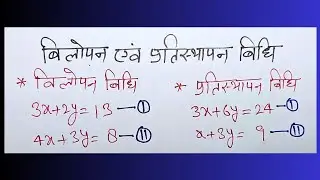 विलोपन एवं प्रतिस्थापन विधि
* विलोपन विधि
3x+2y=13 —①
4x+3y=8 —⑪
* प्रतिस्थापन विधि
3x+6y=24 —①
x+3y= 9 —⑪